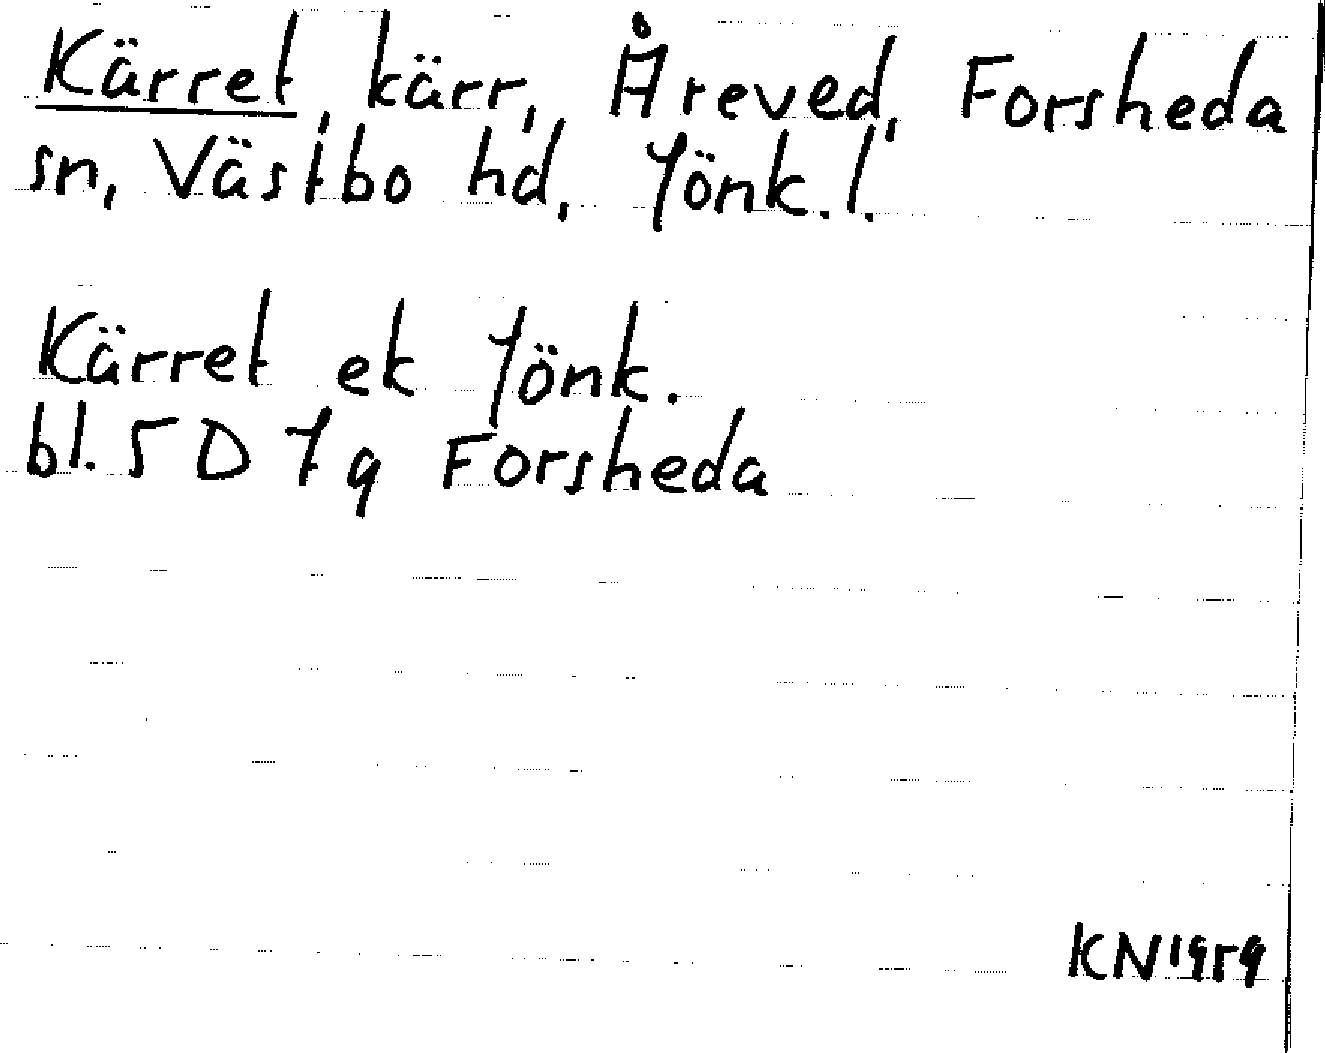 Kärret, kärr, Åreved, Forsheda
sn, Västbo hd, Jönk. l.
Kärret ek Jönk.
bl. 5 D 7 g Forsheda
KN 1959